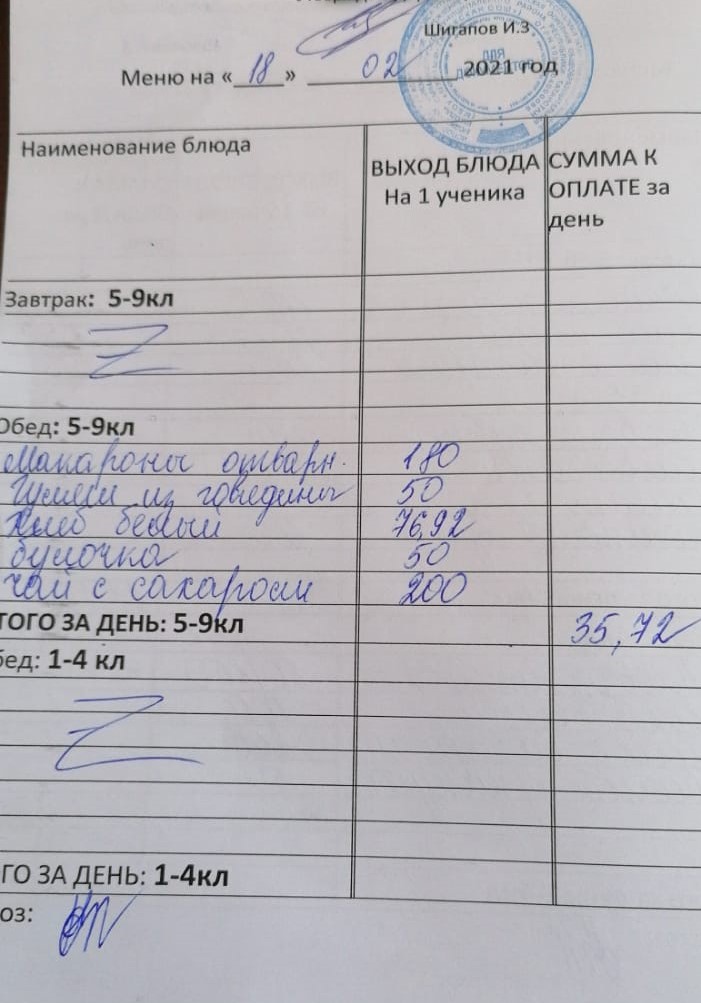 Шигапов И.З
Меню на «18» 02 2021 год
ДЛЯ ДОКУМЕНТОВ
Наименование блюда
ВЫХОД БЛЮДА
На 1 ученика
СУММА К
ОПЛАТЕ за
день
Завтрак: 5-9кл
Обед: 5-9кл
Макароны отварн. 180
Гуляш из говедины 50
Хлеб белый 76,92
булочка 50
чай с сахаром 200
ТОГО ЗА ДЕНЬ: 5-9кл 35,72
бед: 1-4 кл
ГО ЗА ДЕНЬ: 1-4кл
оз: